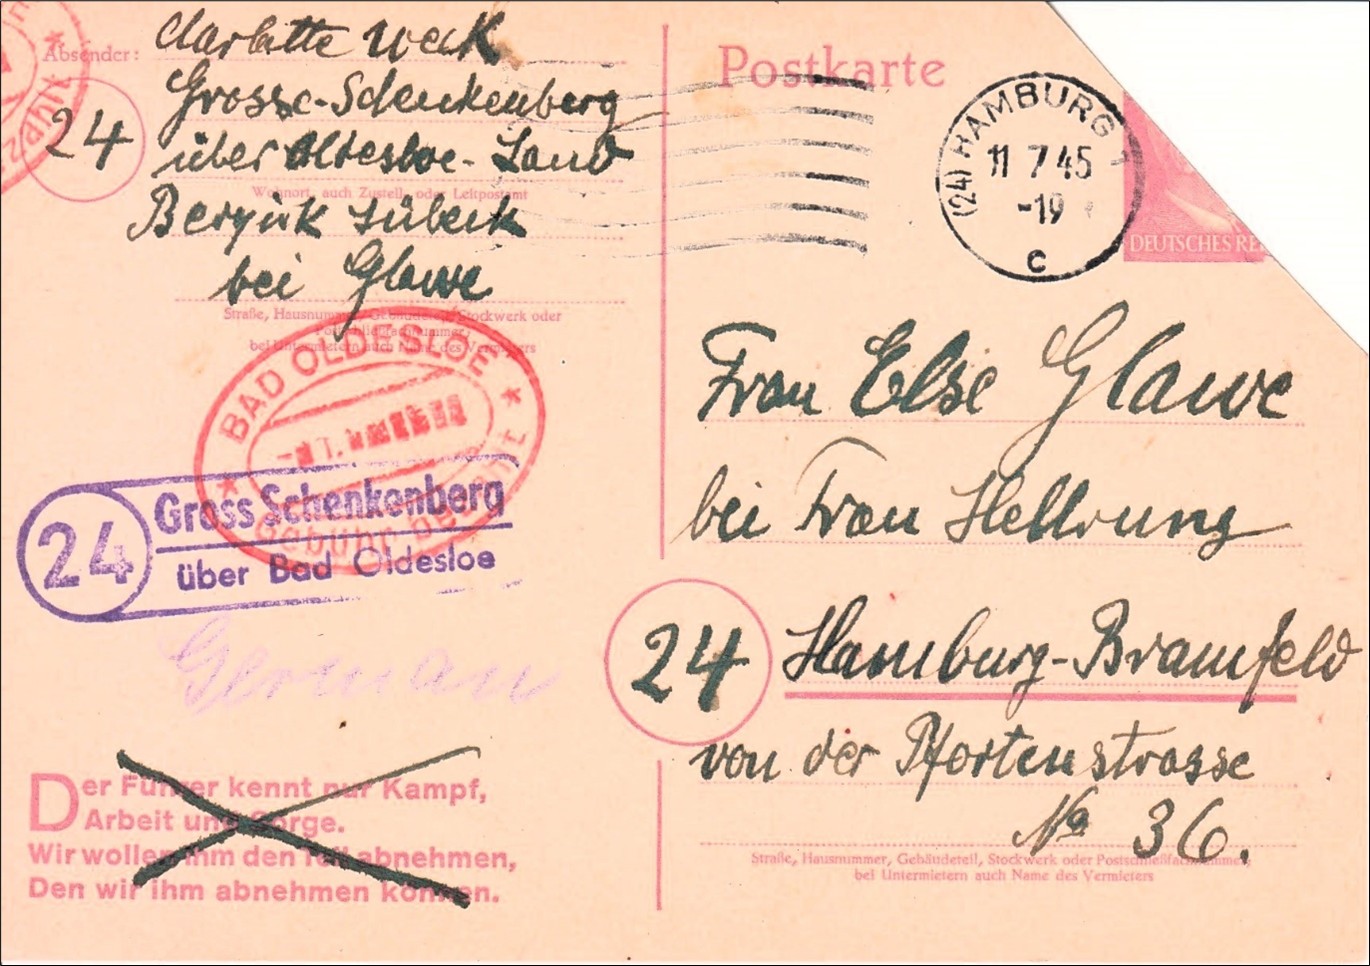 Absender: Charlotte Weck
24 Grosse-Schenkenberg
über Oldesloe-Land
Wohnort, auch Zustell- oder Leitpostamt
Bezirk Lübeck
bei Glawe
Straße, Hausnummer, Gebäudeteil, Stockwerk oder
Postschließfachnummer;
bei Untermietern auch Name des Vermieters
BAD OLDESLOE
Gebühr bezahlt
24
Gross Schenkenberg
über Bad Oldesloe
German
Der Führer kennt nur Kampf,
Arbeit und Sorge.
Wir wollen ihm den Teil abnehmen,
Den wir ihm abnehmen können.
Postkarte
(24) HAMBURG 1
11 7 45
-19
c
DEUTSCHES RE
Frau Else Glawe
bei Frau Hellrung
24 Hamburg-Bramfeld
von der Pfortenstrasse
No 36.
Straße, Hausnummer, Gebäudeteil, Stockwerk oder Postschließfachnummer;
bei Untermietern auch Name des Vermieters